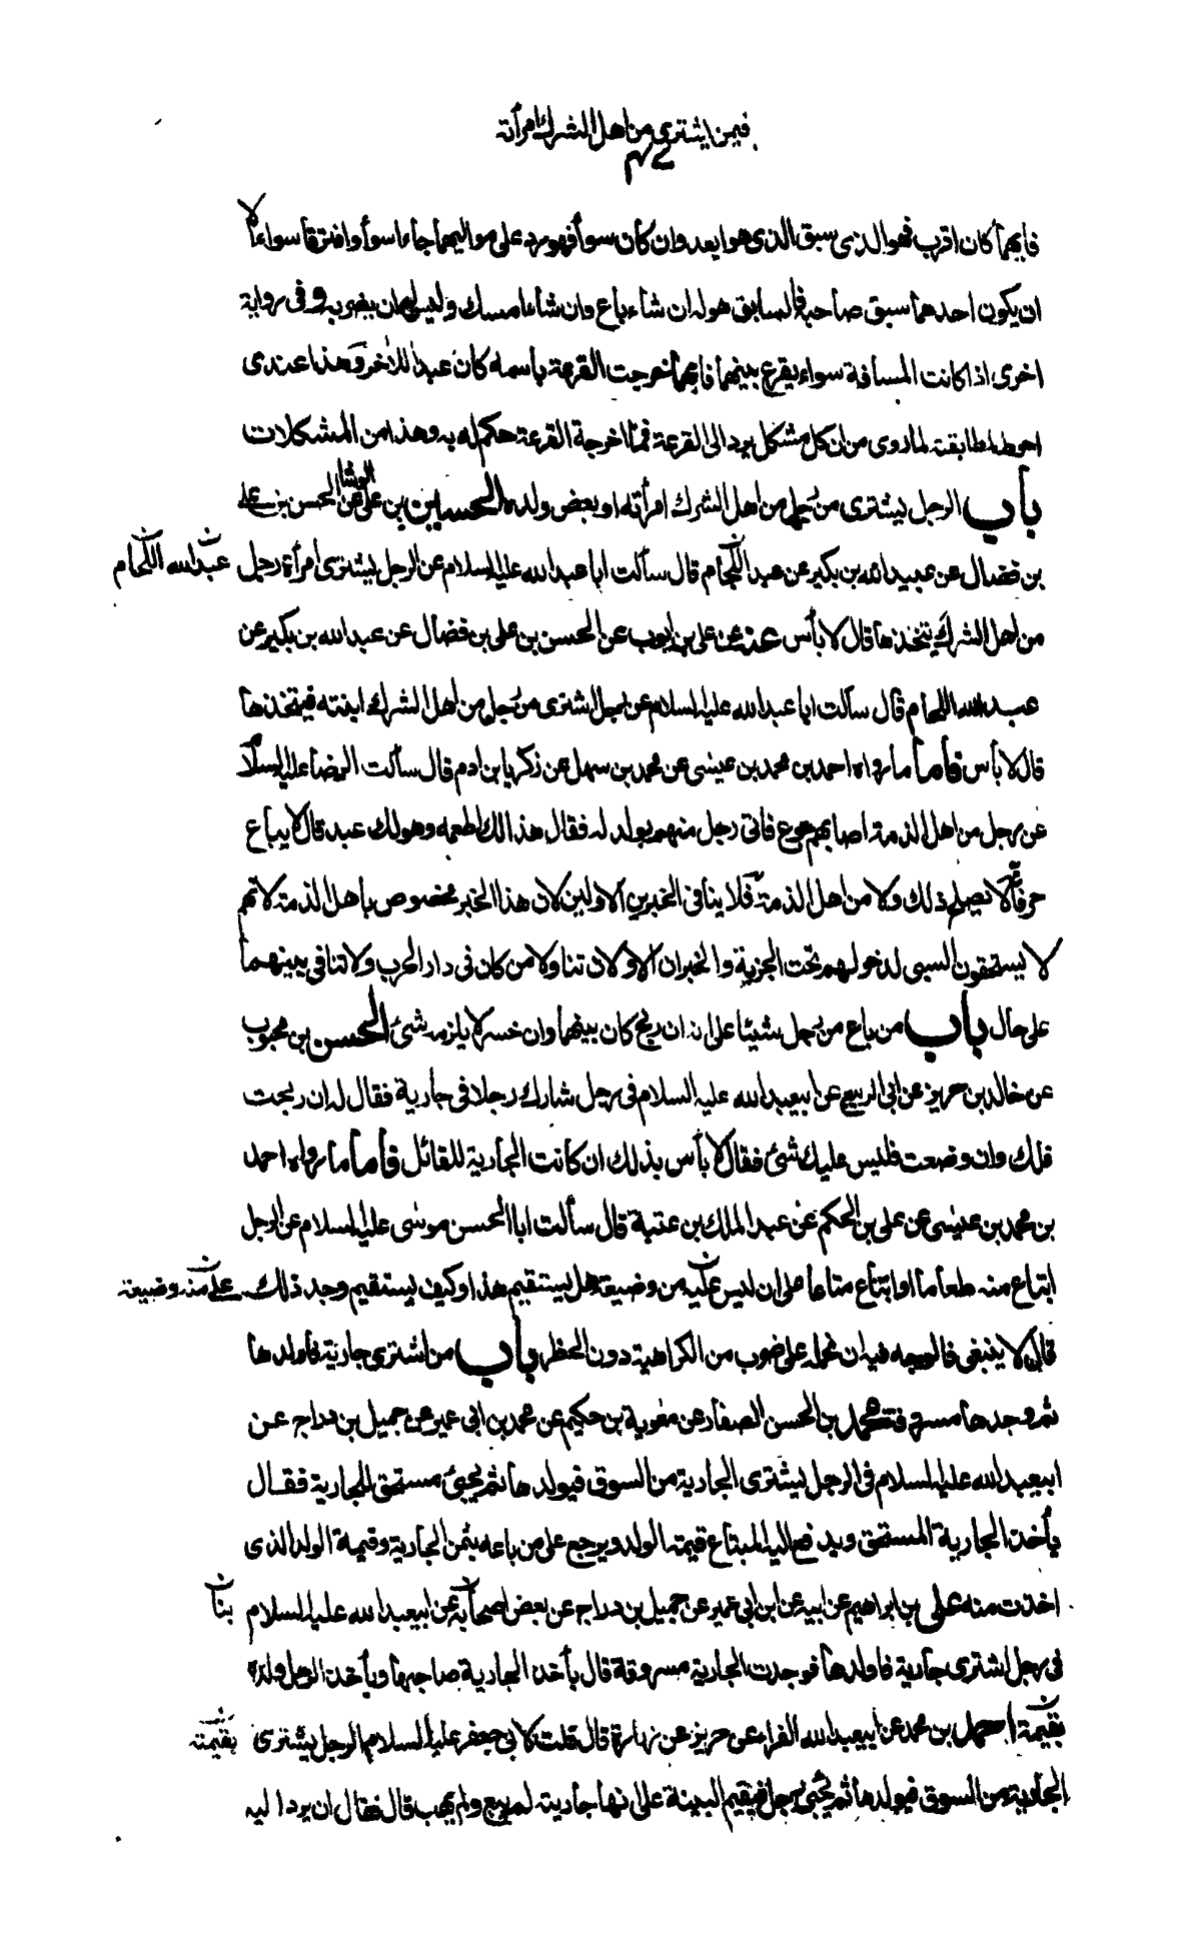 فيمن يشترى من اهل الشرك امرأته
فايهما كان اقرب فهو الذى سبق الذى هو ابعد وان كان سوأ فهو رد على مواليهما جاءا سوأ وافترقا سواء الا
ان يكون احدهما سبق صاحبه فالسابق هو له ان شاء باع وان شاء امسك وليس له ان يضربه وفى رواية
اخرى اذا كانت المسافة سواء يقرع بينهما فايهما خرجت القرعة باسمه كان عبدا للاخر وهذا عندى
احوط لمطابقته لما روى من ان كل مشكل يرد الى القرعة فما اخرجة القرعة حكم له به وهذا من المشكلات
باب الرجل يشترى من رجل من اهل الشرك امرأته او بعض ولده الحسين بن على الوشا عن الحسن بن على
بن فضال عن عبيد الله بن بكير عن عبد اللحام قال سألت ابا عبد الله عليه السلام عن الرجل يشترى امرأة رجل
عبد الله اللحام
من اهل الشرك يتخذها قال لا بأس عنه عن على بن ايوب عن الحسن بن على بن فضال عن عبد الله بن بكير عن
عبد الله اللحام قال سألت ابا عبد الله عليه السلام عن رجل اشترى من رجل من اهل الشرك ابنته فيتخذها
قال لا بأس فأما ما رواه احمد بن محمد بن عيسى عن محمد بن سهل عن زكريا بن ادم قال سألت الرضا عليه السلام
عن رجل من اهل الذمة اصابهم جوع فاتى رجل منهم بولد له فقال هذا لك اطعمه وهو لك عبد قال لا يباع
حر فأنه لا يصلح ذلك ولا من اهل الذمة فلا ينافى الخبرين الاولين لان هذا الخبر مخصوص باهل الذمة لانهم
لا يستحقون السبى لدخولهم تحت الجزية والخبران الاولان تناولا من كان فى دار الحرب ولا تنافى بينهما
على حال باب من باع من رجل شيئا على انه ان ربح كان بينهما وان خسر لا يلزمه شئ الحسن بن محبوب
عن خالد بن حريز عن ابى الربيع عن ابيعبد الله عليه السلام فى رجل شارك رجلا فى جارية فقال له ان ربحت
فلك وان وضعت فليس عليك شئ فقال لا بأس بذلك ان كانت الجارية للقائل فأما ما رواه احمد
بن محمد بن عيسى عن على بن الحكم عن عبد الملك بن عتبة قال سألت ابا الحسن موسى عليه السلام عن الرجل
ابتاع منه طعاما او ابتاع متاعا على ان ليس عليه من وضيعة هل يستقيم هذا وكيف يستقيم وجد ذلك
على منه وضيعة
قال لا ينبغى فالوجه فيه ان نحمله على ضرب من الكراهية دون الحظر باب من اشترى جارية فاولدها
ثم وجدها مسروقة محمد بن الحسن الصفار عن معوية بن حكيم عن محمد بن ابى عمير عن جميل بن دراج عن
ابيعبد الله عليه السلام فى الرجل يشترى الجارية من السوق فيولدها ثم يجئ مستحق الجارية فقال
يأخذ الجارية المستحق ويدفع اليه المبتاع قيمة الولد ويرجع على من باعه بثمن الجارية وقيمة الولد الذى
اخذت منه على بن ابراهيم عن ابيه عن ابن ابى عمير عن جميل بن دراج عن بعض اصحابه عن ابيعبد الله عليه السلام
بنا
فى رجل اشترى جارية فاولدها فوجدت الجارية مسروقة قال يأخذ الجارية صاحبها ويأخذ الرجل ولده
بقيمة احمد بن محمد عن ابيعبد الله الفراء عن حريز عن زرارة قال قلت لابى جعفر عليه السلام الرجل يشترى
بقيمته
الجارية من السوق فيولدها ثم يجئ رجل فيقيم البينة على انها جاريته لم يبع ولم يهب قال فقال ان يرد اليه